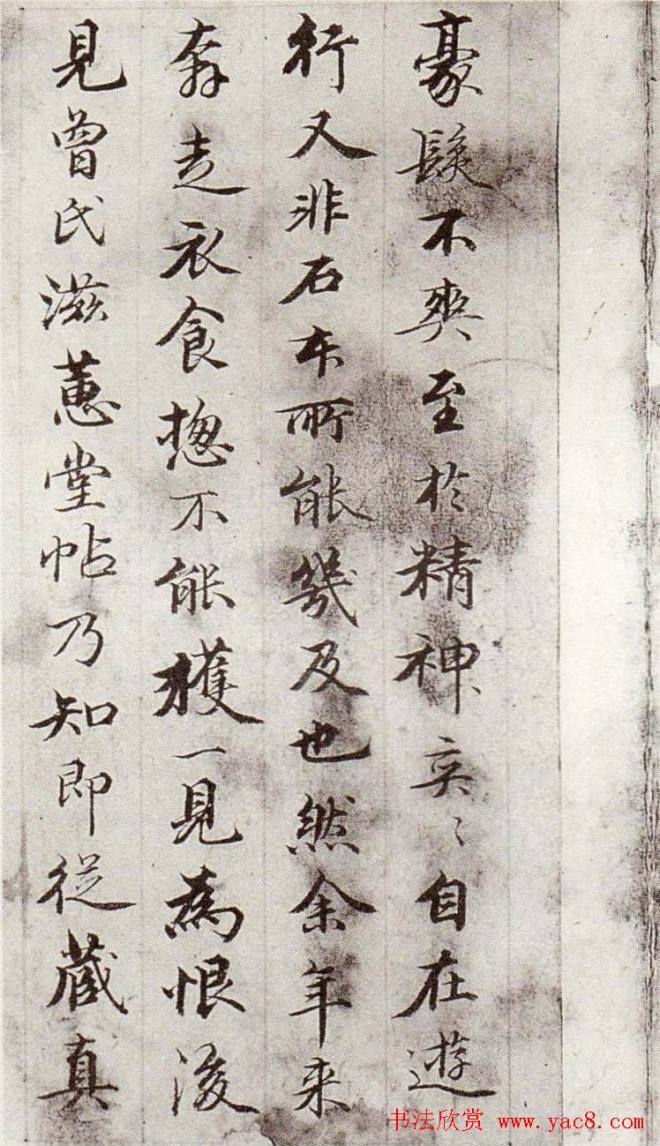 豪髮不爽至於精神奕〻自在遊
行又非石本所能幾及也然余年来
奔走衣食捴不能獲一見為恨後
見曾氏滋蕙堂帖乃知即從藏真
书法欣赏 www.yac8.com